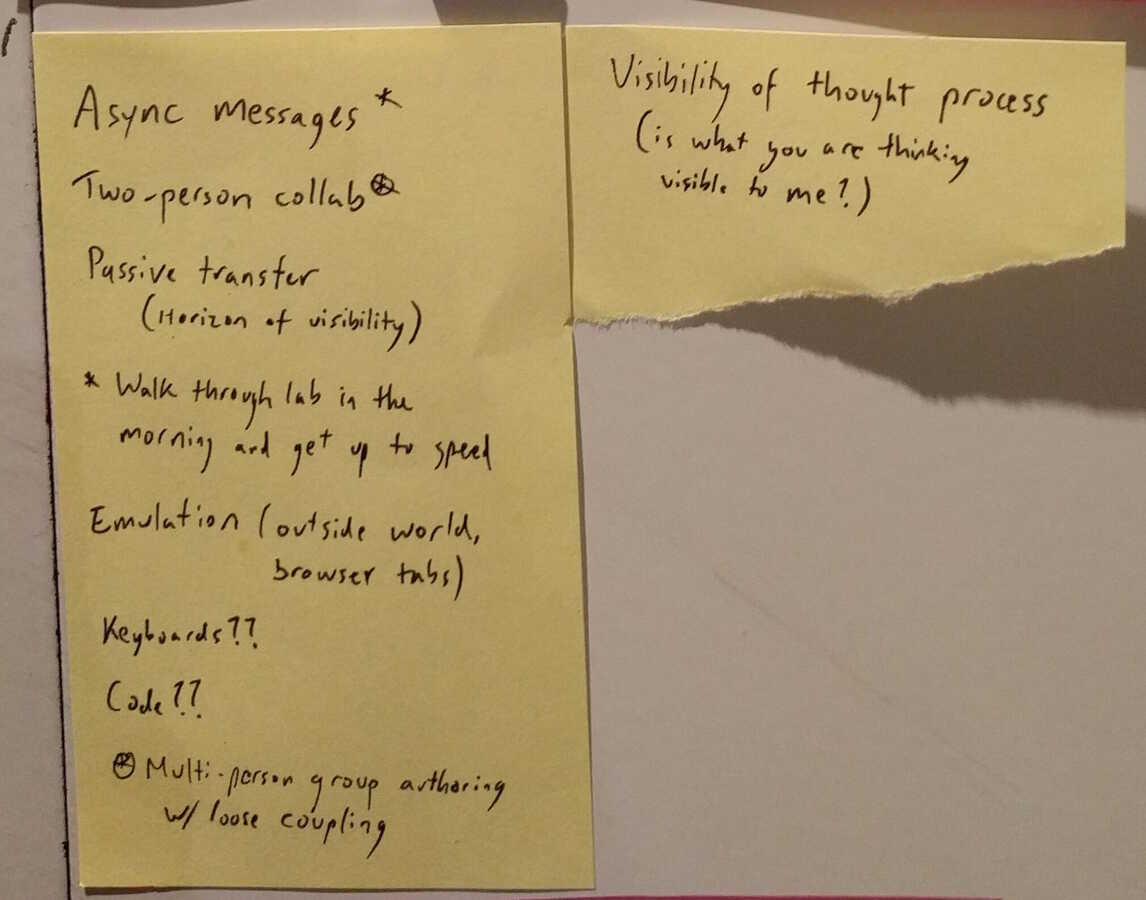 Async messages *
Two-person collab ⊛
Passive transfer
(Horizon of visibility)
* Walk through lab in the
morning and get up to speed
Emulation (outside world,
browser tabs)
Keyboards??
Code??
⊛ Multi-person group authoring
w/ loose coupling
Visibility of thought process
(is what you are thinking
visible to me?)